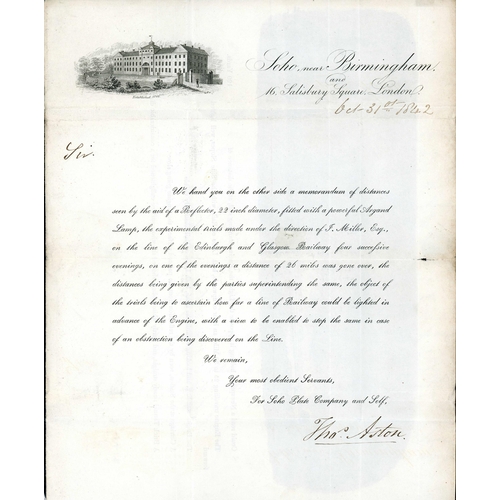 Soho, near Birmingham.
and
16, Salisbury Square, London.
Oct 31st 1842
Sir.
We hand you on the other side a memorandum of distances
seen by the aid of a Reflector, 22 inch diameter, fitted with a powerful Argand
Lamp, the experimental trials made under the direction of J. Miller, Esq.,
on the line of the Edinburgh and Glasgow Railway four successive
evenings, on one of the evenings a distance of 26 miles was gone over, the
distances being given by the parties superintending the same, the object of
the trials being to ascertain how far a line of Railway could be lighted in
advance of the Engine, with a view to be enabled to stop the same in case
of an obstruction being discovered on the Line.
We remain,
Your most obedient Servants,
For Soho Plate Company and Self,
Thos. Aston.